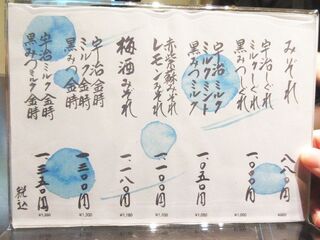 みぞれ
八八〇円
宇治しぐれ
ミルクしぐれ
一.〇〇〇円
宇治ミルク
ミルクミント
黒みつミルク
一.〇五〇円
赤紫蘇みぞれ
レモンみぞれ
一.一〇〇円
梅酒みぞれ
一.一八〇円
宇治金時
ミルク金時
黒みつ金時
一.三〇〇円
宇治ミルク金時
黒みつミルク金時
一.三五〇円
税込
¥1,350
¥1,300
¥1,180
¥1,100
¥1,050
¥1,000
¥880